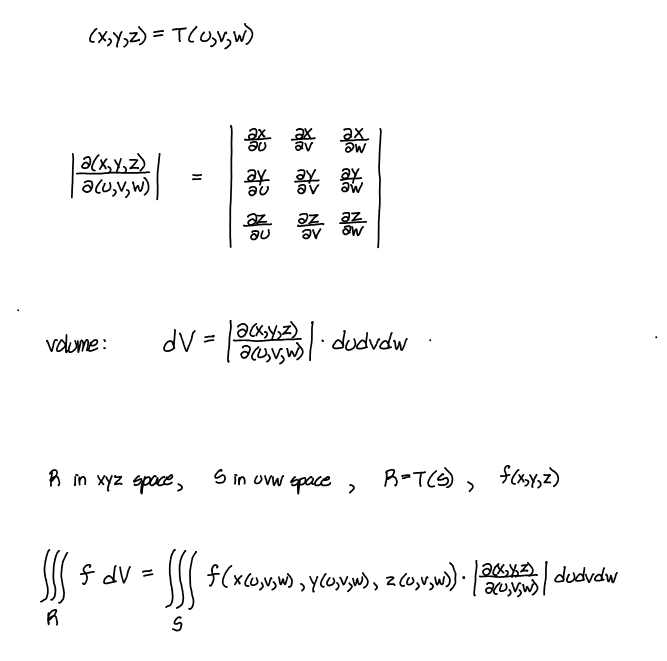 (x,y,z) = T(u,v,w)
|∂(x,y,z)/∂(u,v,w)| = |∂x/∂u ∂x/∂v ∂x/∂w|
|∂y/∂u ∂y/∂v ∂y/∂w|
|∂z/∂u ∂z/∂v ∂z/∂w|
volume: dV = |∂(x,y,z)/∂(u,v,w)| · dudvdw
R in xyz space, S in uvw space, R=T(S), f(x,y,z)
∭_R f dV = ∭_S f(x(u,v,w), y(u,v,w), z(u,v,w)) · |∂(x,y,z)/∂(u,v,w)| dudvdw